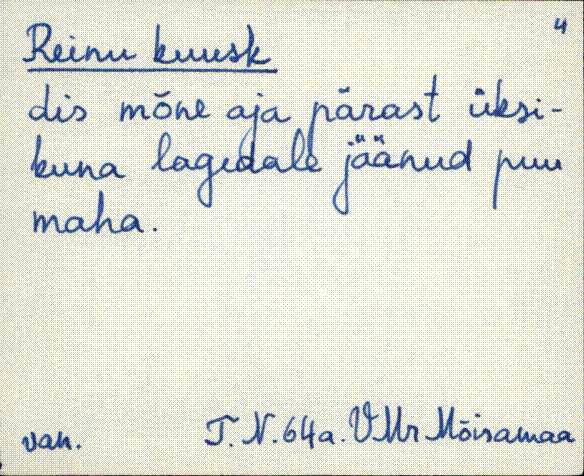 4
Reinu kuusk
dis mõne aja pärast üksi-
kuna lagedale jäänud puu
maha.
van. T. N. 64a. VMr Mõisamaa